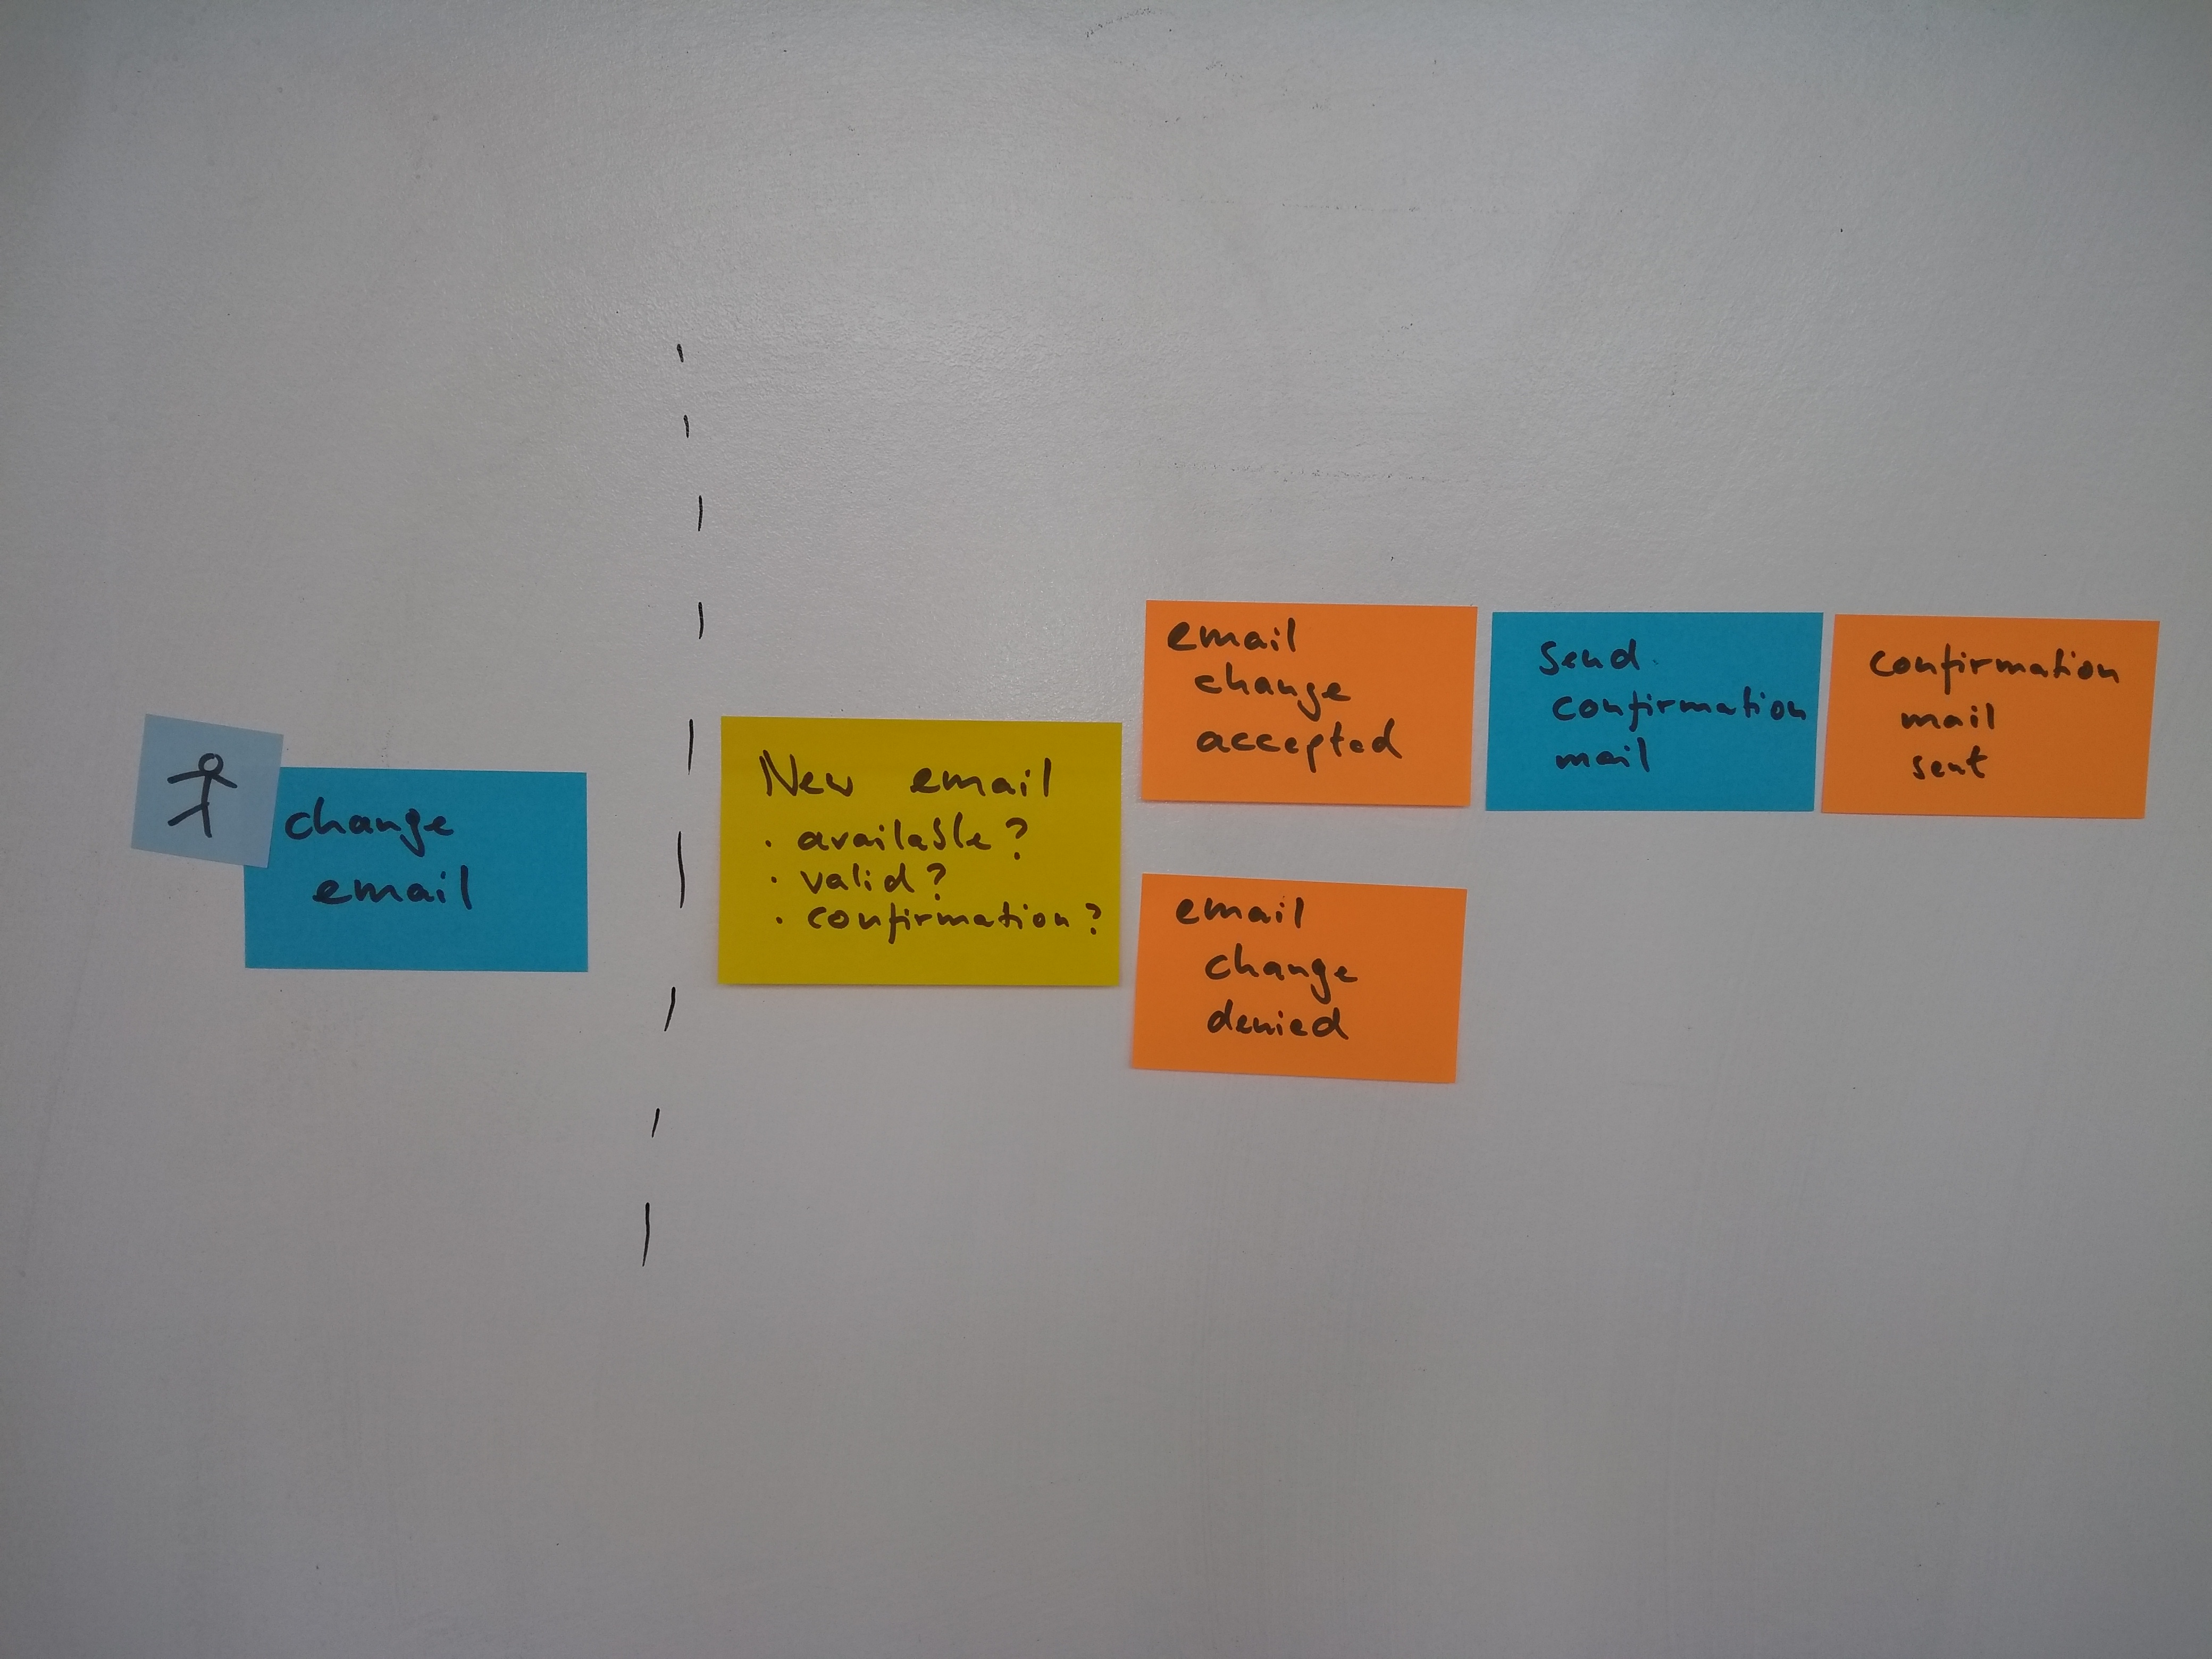 change
email
New email
· available?
· valid?
· confirmation?
email
change
accepted
send
confirmation
mail
confirmation
mail
sent
email
change
denied